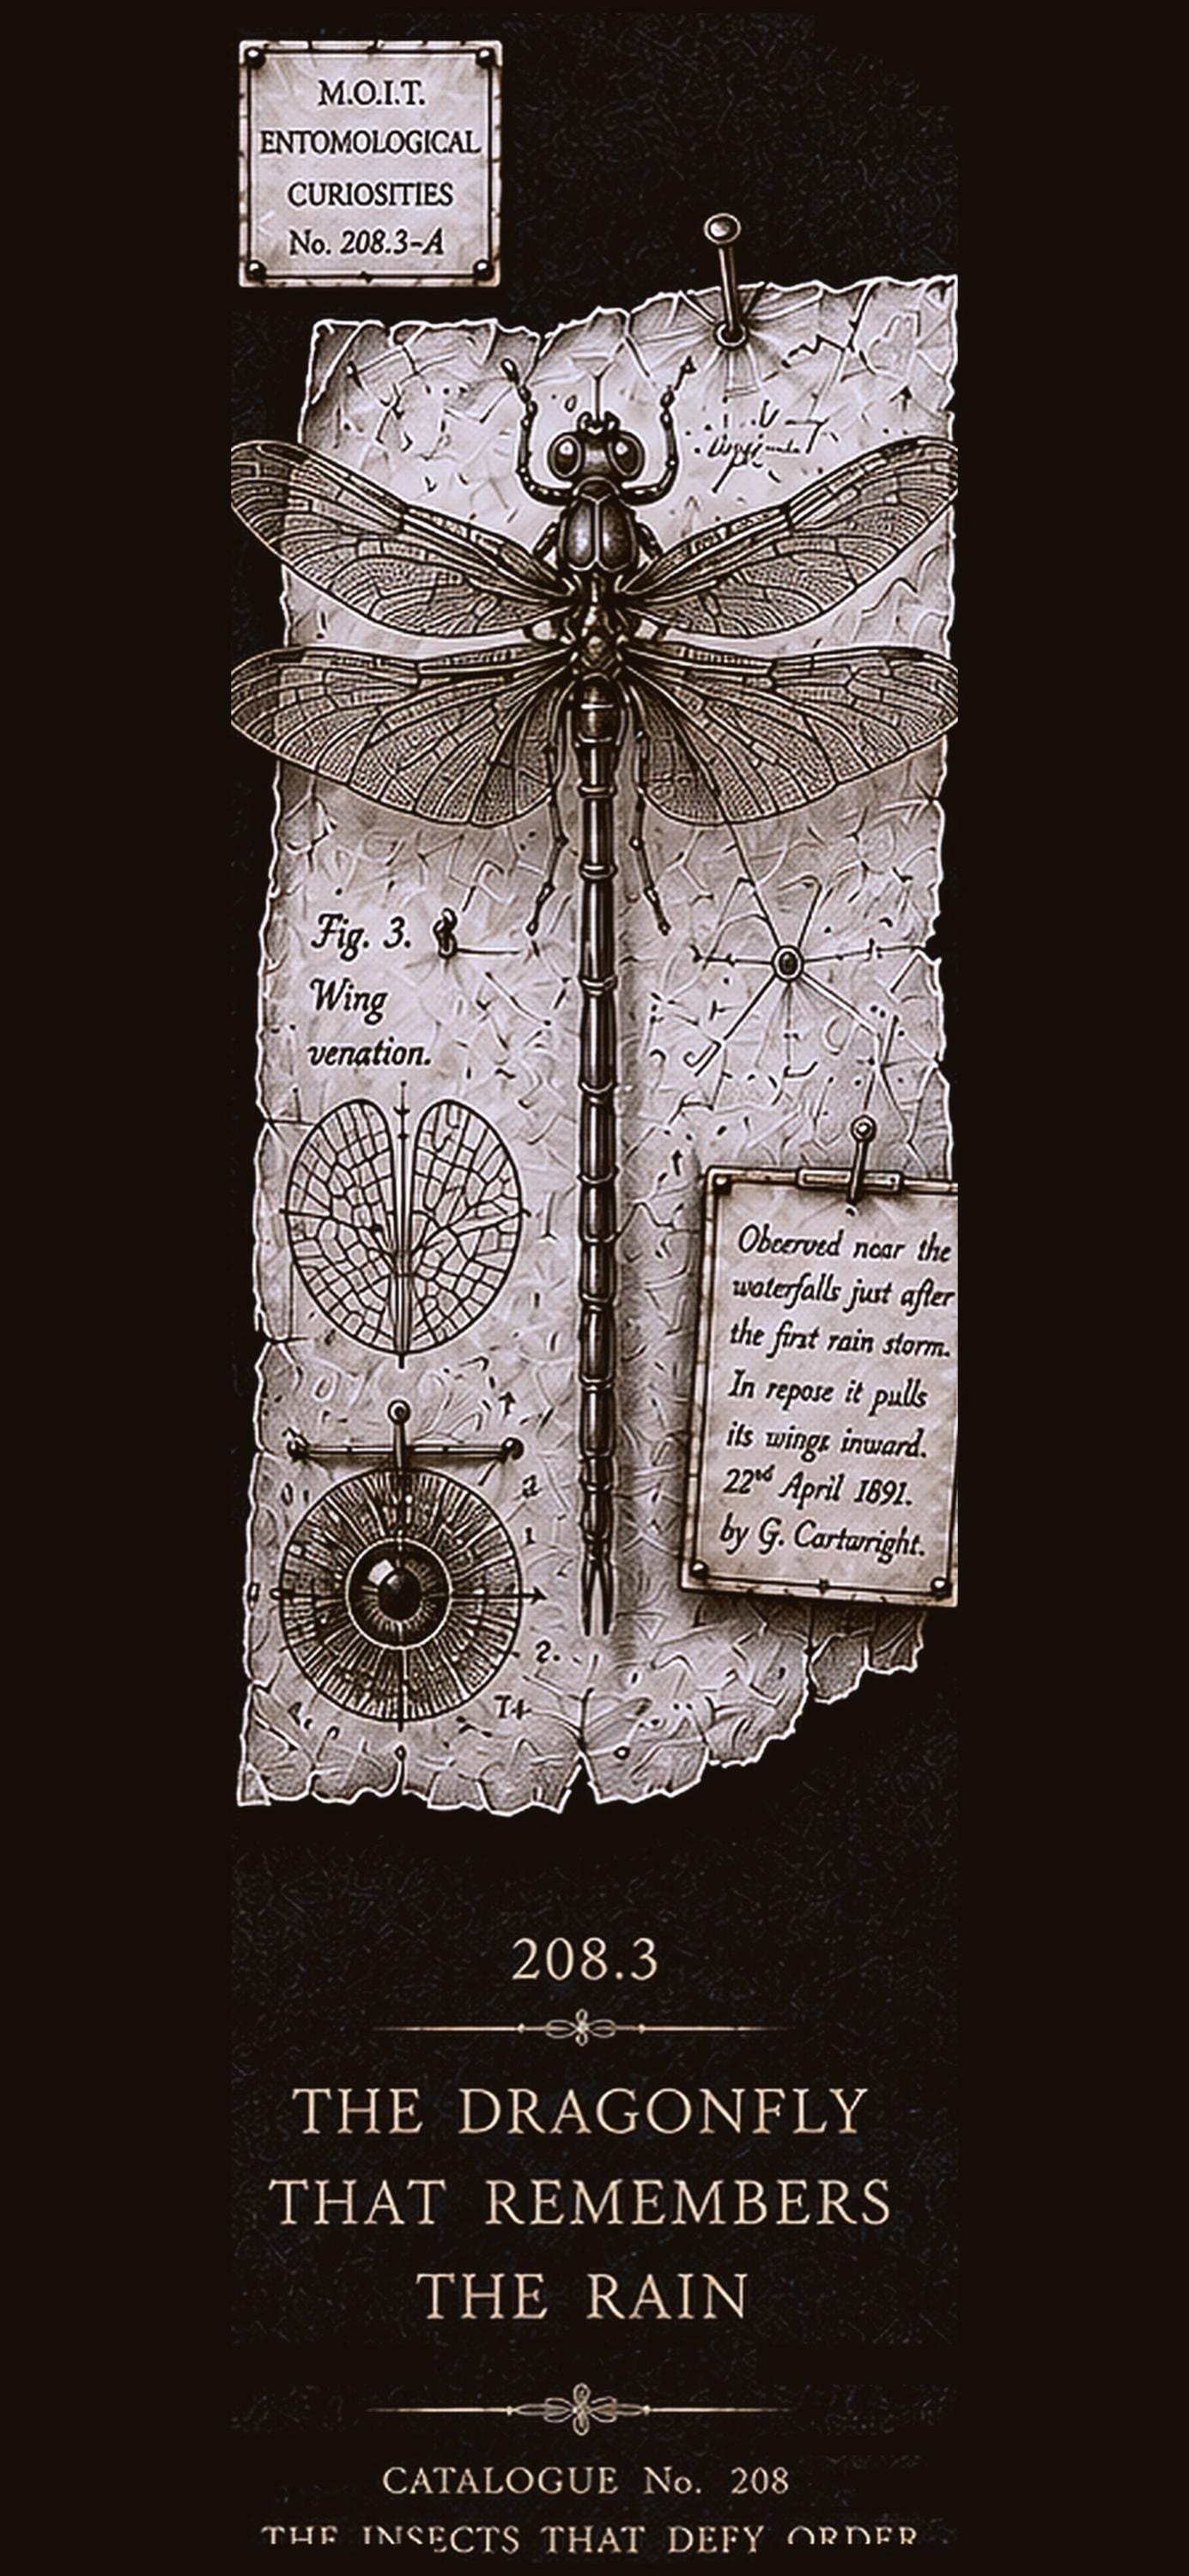 M.O.I.T.
ENTOMOLOGICAL
CURIOSITIES
No. 208.3-A
Fig. 3.
Wing
venation.
Obcerved noar the
waterfalls just after
the first rain storm.
In repose it pulls
its wings inward.
22nd April 1891.
by G. Cartwright.
2
1
2.
208.3
THE DRAGONFLY
THAT REMEMBERS
THE RAIN
CATALOGUE No. 208
THE INSECTS THAT DEFY ORDER